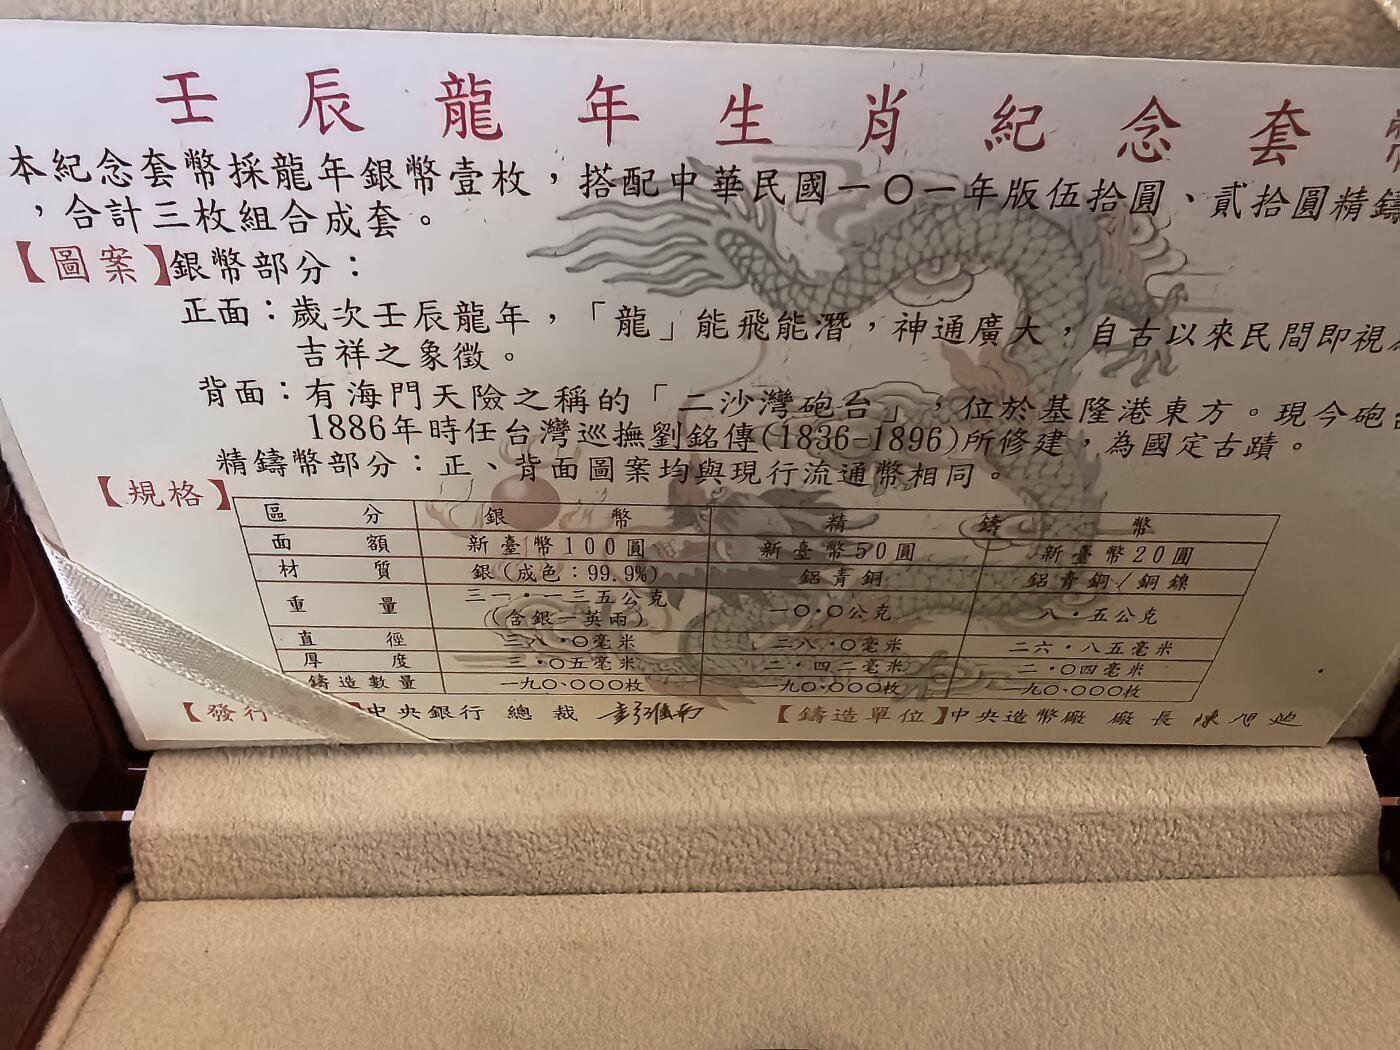 壬辰龍年生肖紀念套
本紀念套幣採龍年銀幣壹枚，搭配中華民國一〇一年版伍拾圓、貳拾圓精鑄
，合計三枚組合成套。
【圖案】銀幣部分：
正面：歲次壬辰龍年，「龍」能飛能潛，神通廣大，自古以來民間即視為
吉祥之象徵。
背面：有海門天險之稱的「二沙灣砲台」，位於基隆港東方。現今砲台
1886年時任台灣巡撫劉銘傳(1836-1896)所修建，為國定古蹟。
精鑄幣部分：正、背面圖案均與現行流通幣相同。
【規格】
區分 銀幣 精鑄幣
面額 新臺幣100圓 新臺幣50圓 新臺幣20圓
材質 銀(成色：99.9%) 鋁青銅 鋁青銅/銅鎳
重量 三一·一三五公克 一〇·〇公克 八·五公克
(含銀一英兩)
直徑 三八·〇毫米 二八·〇毫米 二六·八五毫米
厚度 三·〇五毫米 二·四二毫米 二·〇四毫米
鑄造數量 一九〇、〇〇〇枚 一九〇、〇〇〇枚 一九〇、〇〇〇枚
【發行 】中央銀行 總裁 彭淮南 【鑄造單位】中央造幣廠 廠長